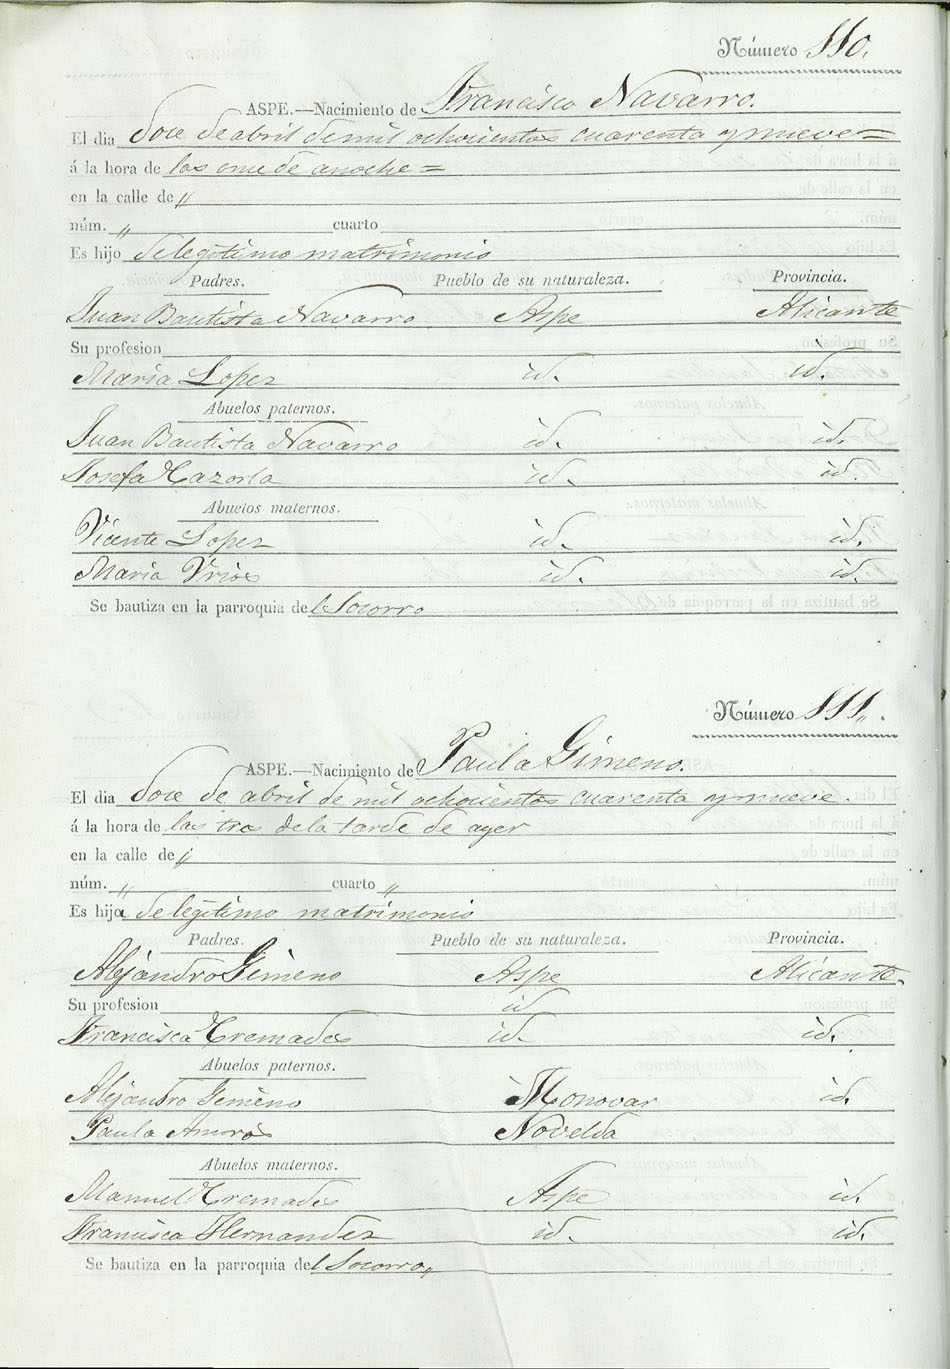 Número 110.
ASPE.—Nacimiento de Francisco Navarro.
El dia doce de abril de mil ochocientos cuarenta y nueve=
á la hora de las once de anoche=
en la calle de "
núm. " cuarto
Es hijo de legitimo matrimonio
Padres. Pueblo de su naturaleza. Provincia.
Juan Bautista Navarro Aspe Alicante
Su profesion
Maria Lopez id. id.
Abuelos paternos.
Juan Bautista Navarro id. id.
Josefa Cazorla id. id.
Abuelos maternos.
Vicente Lopez id. id.
Maria Urios id. id.
Se bautiza en la parroquia del Socorro
Número 111.
ASPE.—Nacimiento de Paula Gimeno.
El dia doce de abril de mil ochocientos cuarenta y nueve.
á la hora de las tres de la tarde de ayer
en la calle de "
núm. " cuarto "
Es hija de legitimo matrimonio
Padres. Pueblo de su naturaleza. Provincia.
Alejandro Gimeno Aspe Alicante.
Su profesion id
Francisca Cremades id. id.
Abuelos paternos.
Alejandro Gimeno Monovar id.
Paula Amoros Novelda
Abuelos maternos.
Manuel Cremades Aspe id.
Francisca Hernandez id. id.
Se bautiza en la parroquia del Socorro.